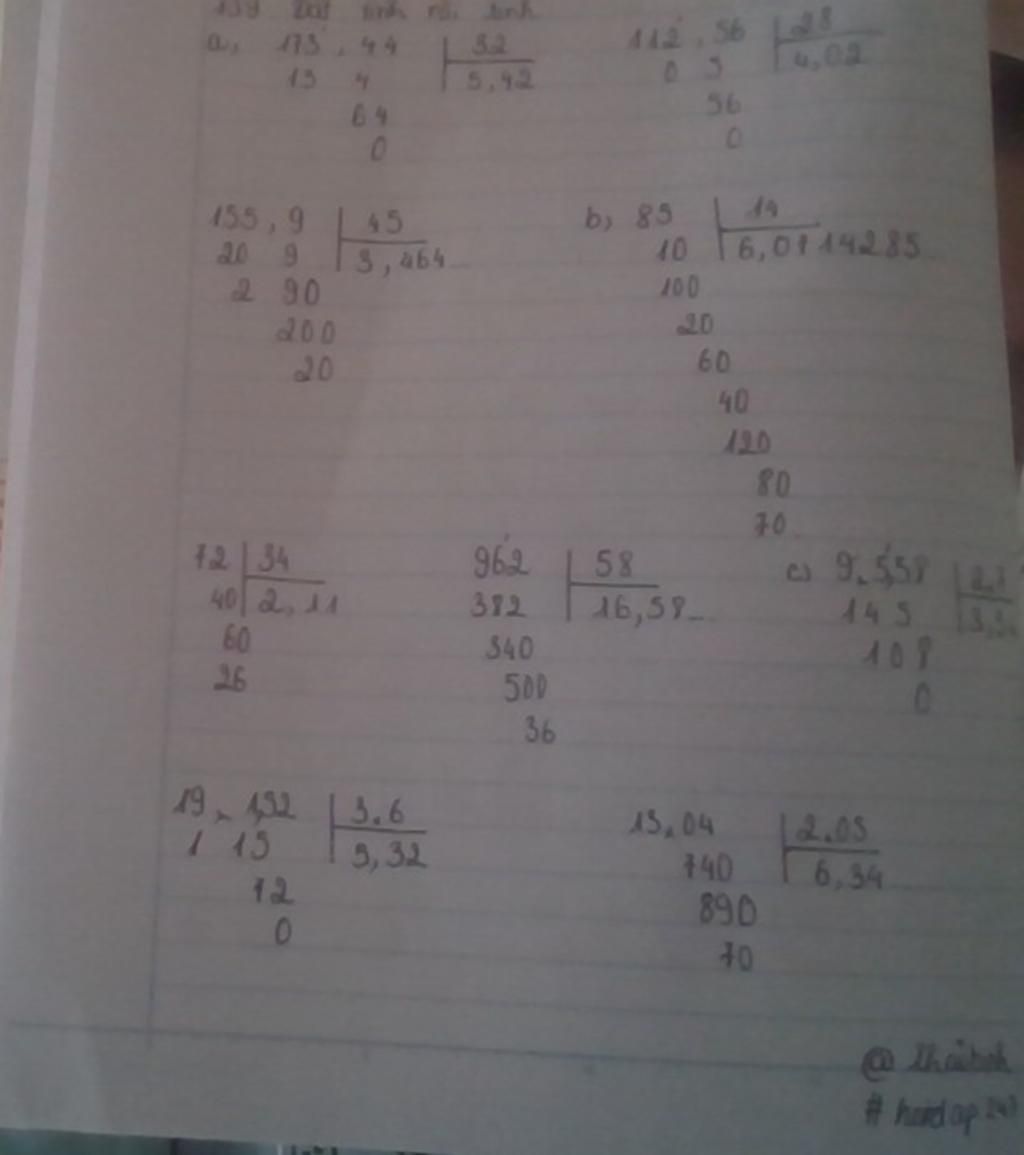 a, 173,44 32 112,56 28
13 4 5,42 0 5 4,02
64 56
0 0
155,9 45 b, 85 14
20 9 3,464 10 6,0714285
2 90 100
200 20
20 60
40
120
80
70
72 34 962 58 c) 9,558
40 2,11 382 16,58... 145
60 340 108
26 500 0
36
19,152 3.6 13,04 2.05
1 15 5,32 740 6,34
72 890
0 70
@
#